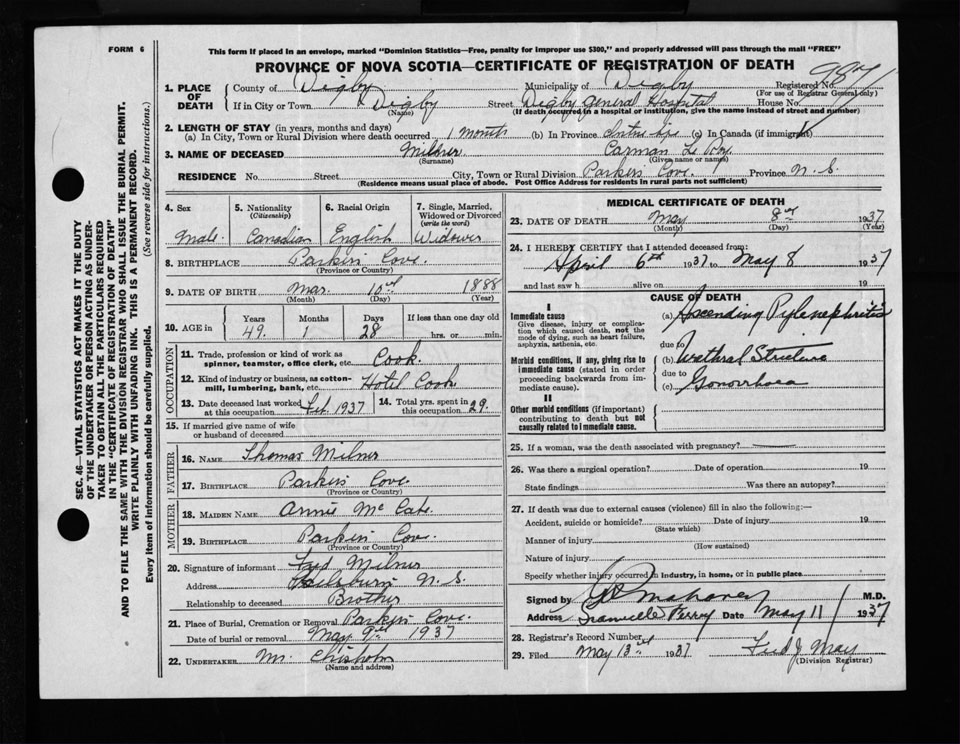 FORM 6
This form if placed in an envelope, marked "Dominion Statistics—Free, penalty for improper use $300," and properly addressed will pass through the mail "FREE"
PROVINCE OF NOVA SCOTIA—CERTIFICATE OF REGISTRATION OF DEATH
1. PLACE OF DEATH County of Digby Municipality of Digby Registered No. 9871
(For use of Registrar General only)
If in City or Town Digby Street Digby General Hospital House No.
(Name) (If death occurred in a hospital or institution, give the name instead of street and number)
2. LENGTH OF STAY (in years, months and days)
(a) In City, Town or Rural Division where death occurred 1 month (b) In Province Entire life (c) In Canada (if immigrant)
3. NAME OF DECEASED Milner Carman
(Surname) (Given name or names)
RESIDENCE No. Street City, Town or Rural Division Parkers Cove. Province N. S.
(Residence means usual place of abode. Post Office Address for residents in rural parts not sufficient)
SEC. 46—VITAL STATISTICS ACT MAKES IT THE DUTY
OF THE UNDERTAKER OR PERSON ACTING AS UNDER-
TAKER TO OBTAIN ALL THE PARTICULARS REQUIRED
IN THE "CERTIFICATE OF REGISTRATION OF DEATH"
AND TO FILE THE SAME WITH THE DIVISION REGISTRAR WHO SHALL ISSUE THE BURIAL PERMIT.
WRITE PLAINLY WITH UNFADING INK. THIS IS A PERMANENT RECORD.
Every item of information should be carefully supplied. (See reverse side for instructions.)
4. Sex 5. Nationality (Citizenship) 6. Racial Origin 7. Single, Married, Widowed or Divorced (write the word)
Male. Canadian English Widower
8. BIRTHPLACE Parkers Cove.
(Province or Country)
9. DATE OF BIRTH Mar. 10th 1888
(Month) (Day) (Year)
10. AGE in Years Months Days If less than one day old
49. 1 28 hrs. or min.
OCCUPATION
11. Trade, profession or kind of work as
spinner, teamster, office clerk, etc. Cook.
12. Kind of industry or business, as cotton-
mill, lumbering, bank, etc. Hotel Cook.
13. Date deceased last worked
at this occupation Feb. 1937
14. Total yrs. spent in
this occupation 29.
15. If married give name of wife
or husband of deceased
FATHER
16. NAME Thomas Milner
17. BIRTHPLACE Parkers Cove.
(Province or Country)
MOTHER
18. MAIDEN NAME Annie
19. BIRTHPLACE Parkers Cove.
(Province or Country)
20. Signature of informant Milner
Address N. S.
Relationship to deceased Brother
21. Place of Burial, Cremation or Removal Parkers Cove.
Date of burial or removal May 9th 1937
22. UNDERTAKER Mr. Chisholm
(Name and address)
MEDICAL CERTIFICATE OF DEATH
23. DATE OF DEATH May 8th 1937
(Month) (Day) (Year)
24. I HEREBY CERTIFY that I attended deceased from:
April 6th 1937 to May 8 1937
and last saw h alive on 19
CAUSE OF DEATH
I
Immediate cause (a) Ascending Pylenephritis
Give disease, injury or complica-
tion which caused death, not the
mode of dying, such as heart failure,
asphyxia, asthenia, etc.
due to
Morbid conditions, if any, giving rise to (b) Urethral Stricture
immediate cause (stated in order
proceeding backwards from im-
mediate cause).
due to
(c) Gonorrhoea
II
Other morbid conditions (if important)
contributing to death but not
causally related to immediate cause.
25. If a woman, was the death associated with pregnancy?
26. Was there a surgical operation? Date of operation 19
State findings Was there an autopsy?
27. If death was due to external causes (violence) fill in also the following:—
Accident, suicide or homicide? Date of injury 19
(State which)
Manner of injury
(How sustained)
Nature of injury
Specify whether injury occurred in industry, in home, or in public place
Signed by Mahaney M.D.
Address Granville Ferry Date May 11 1937
28. Registrar's Record Number
29. Filed May 13th 1937 Fred J. May
(Division Registrar)